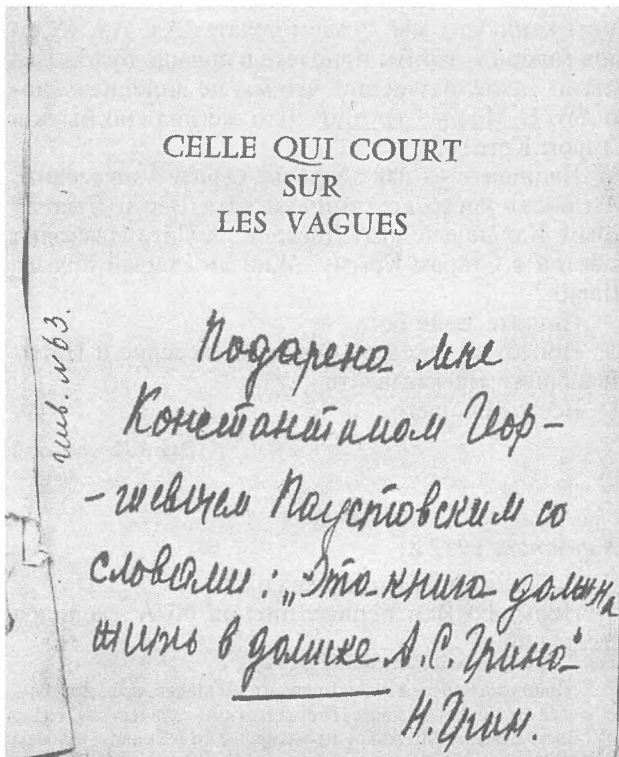 CELLE QUI COURT
SUR
LES VAGUES
инв. №63.
Подарена мне
Константином Геор-
-гиевичем Паустовским со
словами: „Эта книга должна
жить в домике А.С. Грина"
Н. Грин.